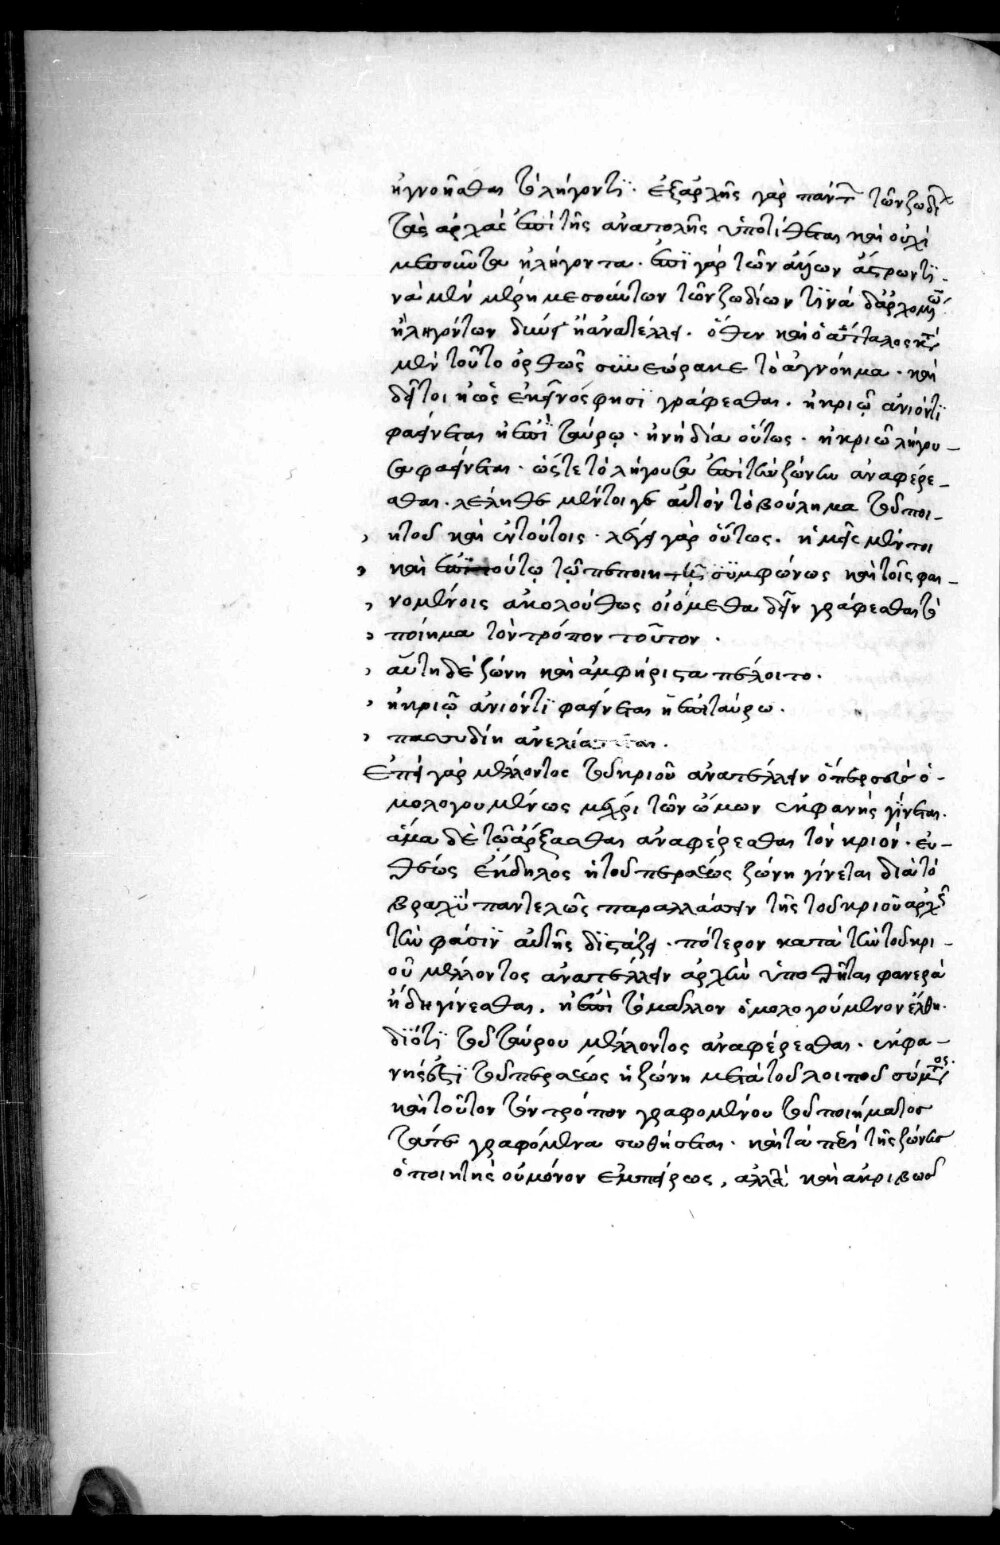 ἠγνοῆσθαι τὸ λήγοντι. ἐξαρχῆς γὰρ πάντ τῶν ζωδι
τὰς ἀρχὰς ἐπὶ τῆς ἀνατολῆς ὑποτίθεται καὶ οὐχὶ
μεσοῦντα ἢ λήγοντα. ἐπὶ γὰρ τῶν ἄστρων τι-
νὰ μὲν μέρη μεσούντων τῶν ζωδίων τινὰ δ' ἀρχομ
ἢ ληγόντων ἀνατέλλει. ὅθεν καὶ ὁ ἄτταλος
μὲν τοῦτο ὀρθῶς συνεώρακε τὸ ἀγνόημα. καὶ
δεῖ τοι ὡς ἐκεῖνός φησι γράφεσθαι. ἢ κριῶ ἀνιόντι
φαείνεται ἢ ἐπὶ ταύρῳ. ἢ νὴ δία οὕτως. ἢ κριῶ λήγου-
σα φαείνεται. ὥστε τὸ λήγουσα ἐπὶ τὴν ζώνην ἀναφέρε-
σθαι. λέληθε μέντοι γε αὐτὸν τὸ βούλημα τοῦ ποι-
ητοῦ καὶ ἐν τούτοις. λέγει γὰρ οὕτως. ἡμεῖς μέντοι
καὶ τούτῳ τῷ πεποιη συμφώνως καὶ τοῖς φαι-
νομένοις ἀκολούθως οἰόμεθα δεῖν γράφεσθαι τὸ
ποίημα τὸν τρόπον τοῦτον.
αὕτη δὲ ζώνη καὶ ἀμφήριστα πέλοιτο.
ἢ κριῷ ἀνιόντι φαείνεται ἢ ἐπὶ ταύρω.
πασσυδίη ἀνελίσσεται.
Ἐπεὶ γὰρ μέλλοντος τοῦ κριοῦ ἀνατέλλειν ὁ περσεὺς ὁ-
μολογουμένως μέχρι τῶν ὤμων ἐκφανὴς γίνεται.
ἅμα δὲ τῷ ἄρξασθαι ἀναφέρεσθαι τὸν κριόν. εὐ-
θέως ἔκδηλος ἡ τοῦ περσέως ζώνη γίνεται διὰ τὸ
βραχὺ παντελῶς παραλλάσσειν τῆς τοῦ κριοῦ ἀρχῆς
τὴν φάσιν αὐτῆς διστάζει. πότερον κατὰ τὴν τοῦ κρι-
οῦ μέλλοντος ἀνατέλλειν ἀρχὴν ὑποθῆται φανερὰ
ἤδη γίνεσθαι. ἢ ἐπὶ τὸ μᾶλλον ὁμολογούμενον ἔλθη.
διότι τοῦ ταύρου μέλλοντος ἀναφέρεσθαι. ἐκφα-
νής ἐστι τοῦ περσέως ἡ ζώνη μετὰ τοῦ λοιποῦ σώματος.
καὶ τοῦτον τὸν τρόπον γραφομένου τοῦ ποιήματος
τά τε γραφόμενα σωθήσεται. καὶ τὰ περὶ τῆς ζώνης
ὁ ποιητὴς οὐ μόνον ἐμπείρως, ἀλλὰ καὶ ἀκριβῶς